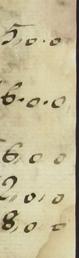 5.0.0
6.0.0
6,0 0
2,0,0
8,0 0